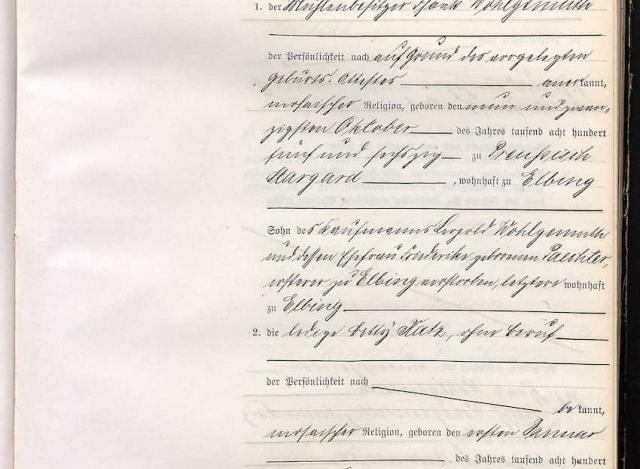 1. der Mühlenbesitzer Frank Wohlgemuth
der Persönlichkeit nach auf Grund des vorgelegten
Geburts-Attestes anerkannt,
mosaischer Religion, geboren den neun und zwan-
zigsten Oktober des Jahres tausend acht hundert
fünf und sechszig zu Preußisch
Stargard, wohnhaft zu Elbing
Sohn des Kaufmanns Leopold Wohlgemuth
und dessen Ehefrau Friederike geborenen Paechter,
ersterer zu Elbing verstorben, letztere wohnhaft
zu Elbing
2. die ledige Betty Katz, ohne Beruf
der Persönlichkeit nach
be kannt,
mosaischer Religion, geboren den ersten Januar
des Jahres tausend acht hundert